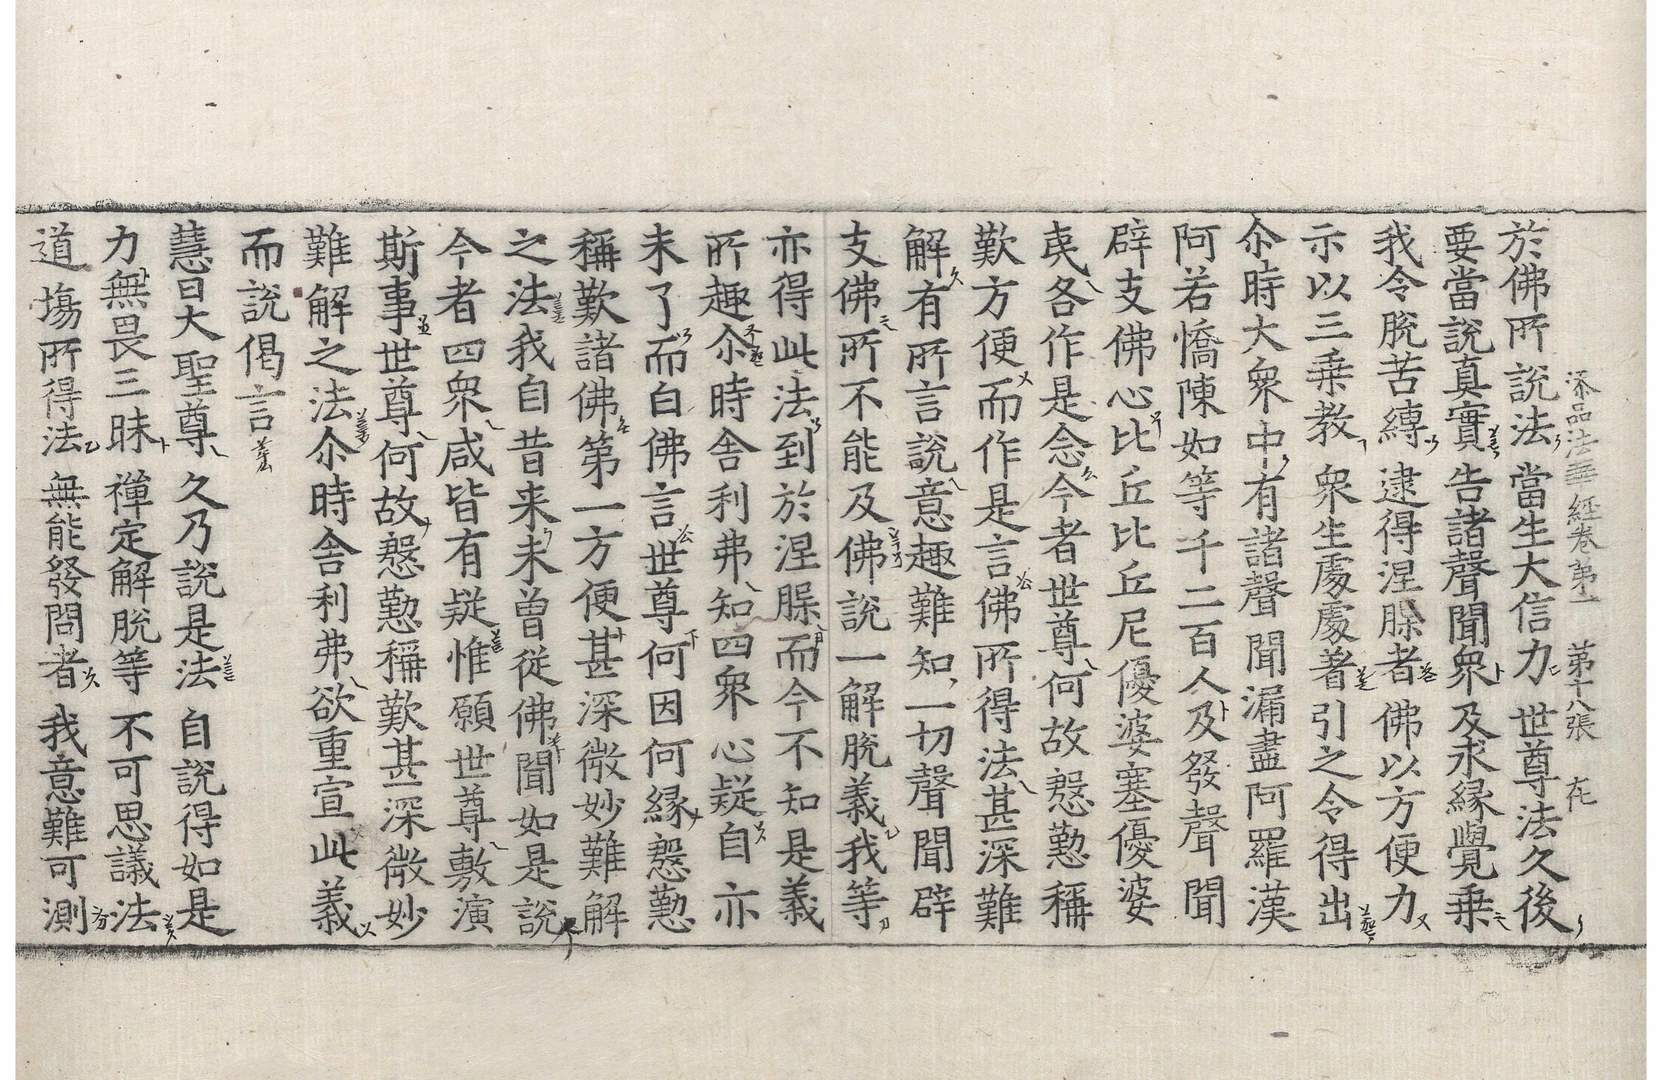 添品法華經卷第一　第十八張　在
於佛所說法　當生大信力　世尊法久後
要當說真實　告諸聲聞衆　及求緣覺乗
我令脫苦縛　逮得涅槃者　佛以方便力
示以三乗教　衆生處處著　引之令得出
尒時大衆中有諸聲聞漏盡阿羅漢
阿若憍陳如等千二百人及發聲聞
辟支佛心比丘比丘尼優婆塞優婆
夷各作是念今者世尊何故慇懃稱
歎方便而作是言佛所得法甚深難
解有所言說意趣難知一切聲聞辟
支佛所不能及佛說一解脫義我等
亦得此法到於涅槃而今不知是義
所趣尒時舍利弗知四衆心疑自亦
未了而白佛言世尊何因何緣慇懃
稱歎諸佛第一方便甚深微妙難解
之法我自昔来未曾從佛聞如是說
今者四衆咸皆有疑惟願世尊敷演
斯事世尊何故慇懃稱歎甚深微妙
難解之法尒時舍利弗欲重宣此義
而說偈言
慧日大聖尊　久乃說是法　自說得如是
力無畏三昧　禪定解脫等　不可思議法
道場所得法　無能發問者　我意難可測